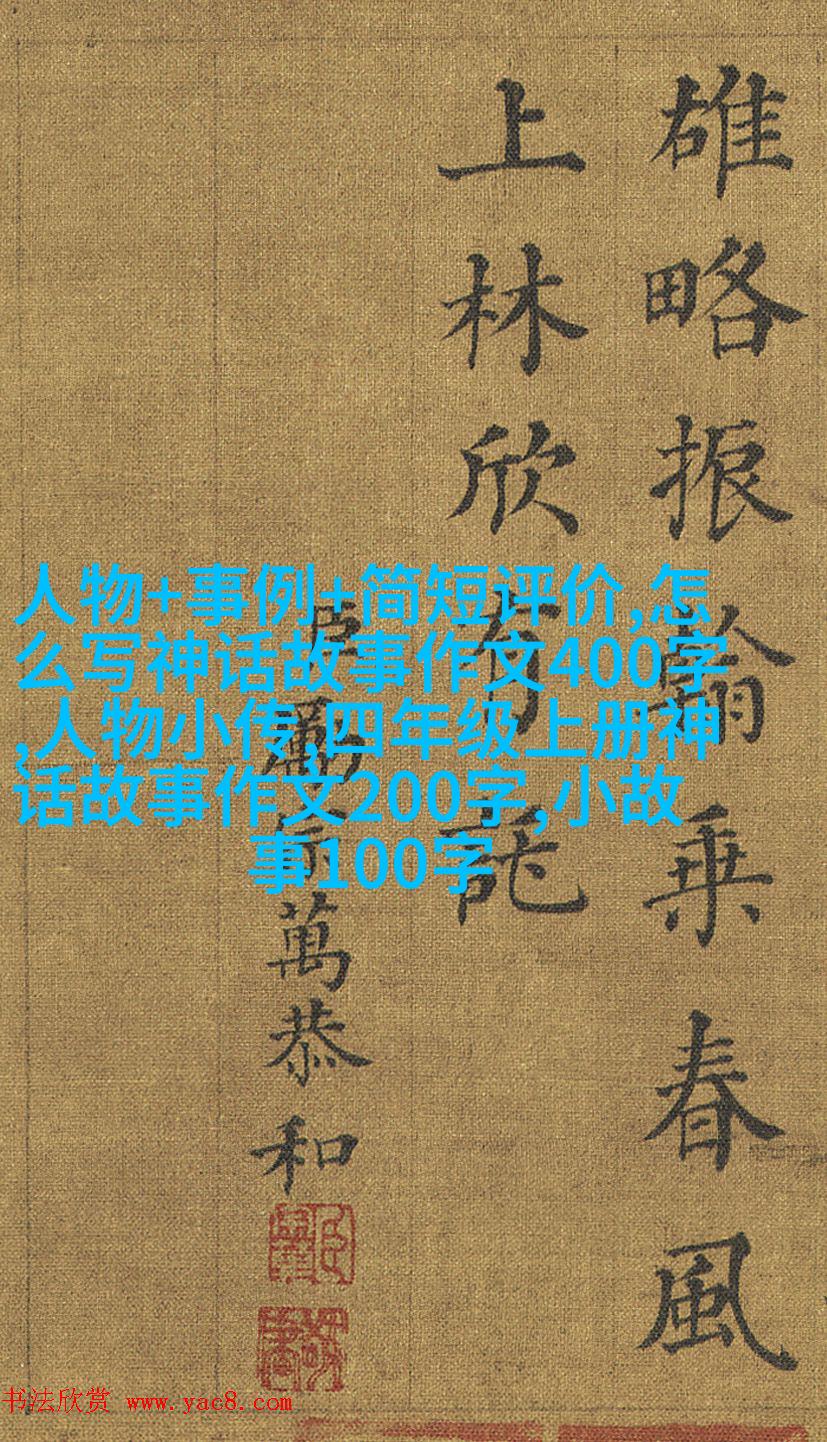 雄略振翰乘春風
上林欣有託
臣勵宗萬恭和
人物+事例+简短评价,怎
么写神话故事作文400字
,人物小传,四年级上册神
话故事作文200字,小故
事100字
书法欣赏 www.yac8.com